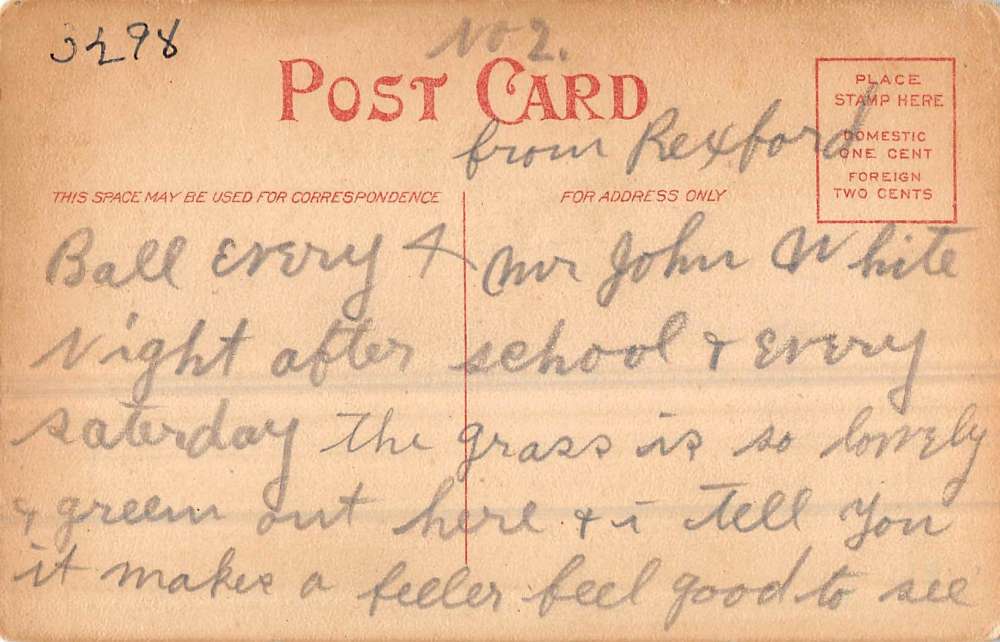 3298
No 2.
POST CARD
PLACE
STAMP HERE
DOMESTIC
ONE CENT
FOREIGN
TWO CENTS
from Rexford
THIS SPACE MAY BE USED FOR CORRESPONDENCE
FOR ADDRESS ONLY
Ball every
Mr John White
Night after school & every
saterday the grass is so lovely
& green out here & i tell you
it makes a feeler feel good to see